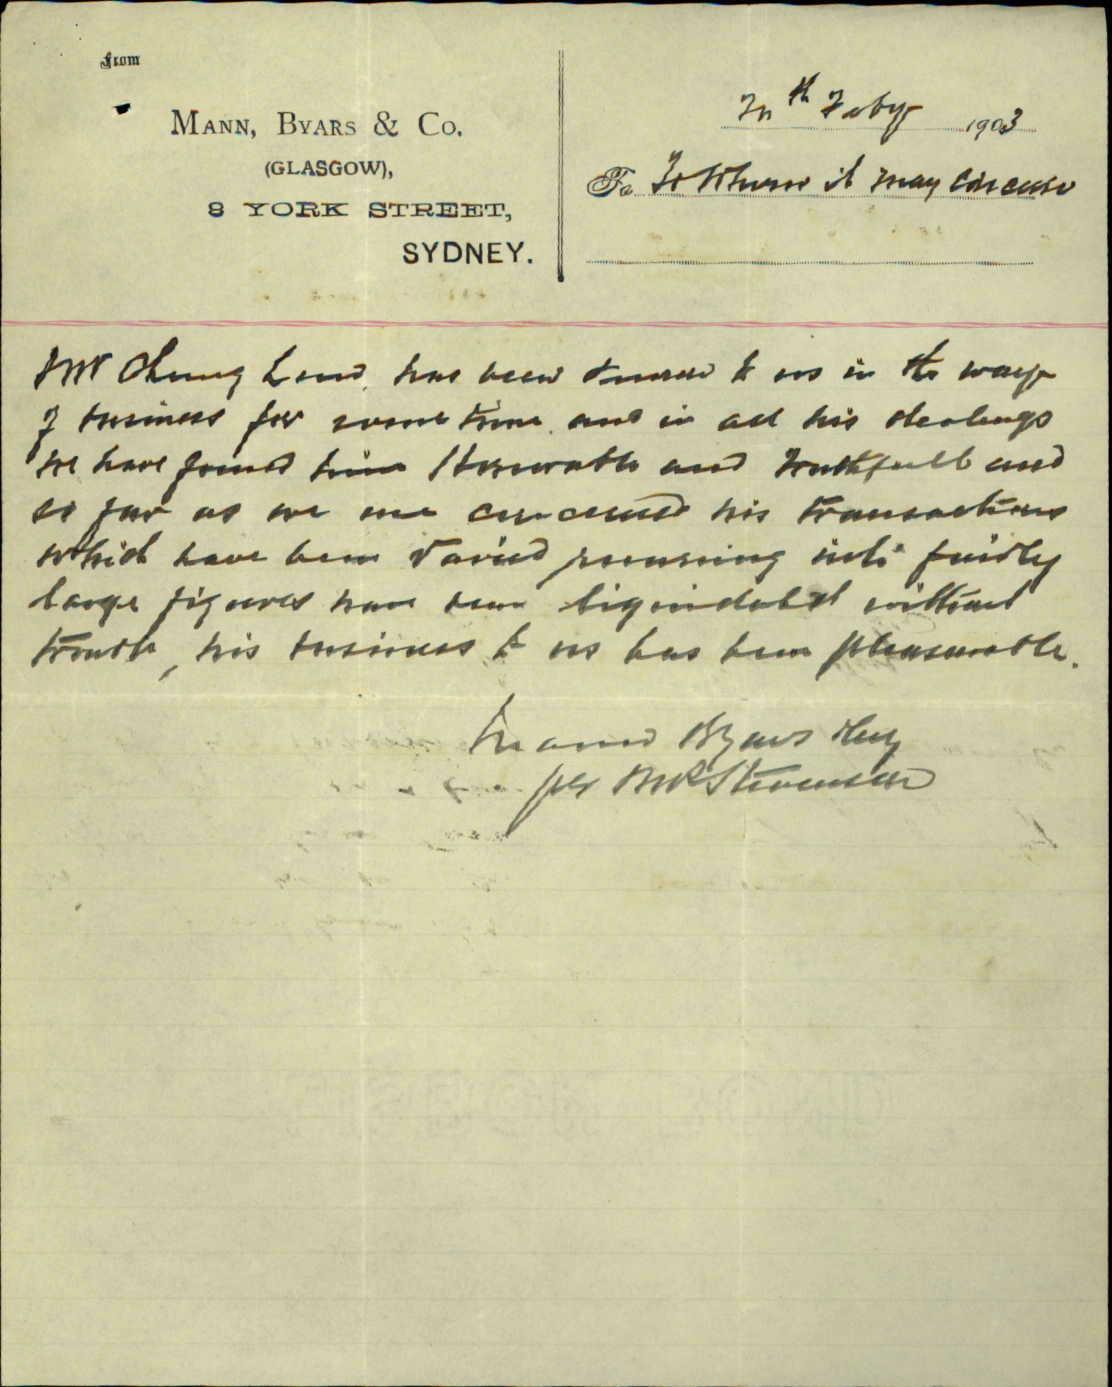 From
MANN, BYARS & Co.
(GLASGOW),
8 YORK STREET,
SYDNEY.
th Feby 1903
To To Whom it may Concern
Mr Chung has been known to us in the way
of business for some time and in all his dealings
we have found him Honorable and truthfull and
so far as we are concerned his transactions
which have been varied running into fairly
large figures have been liquidated without
trouble, his business to us has been pleasurable.
Mann Byars & Coy
per Stevenson